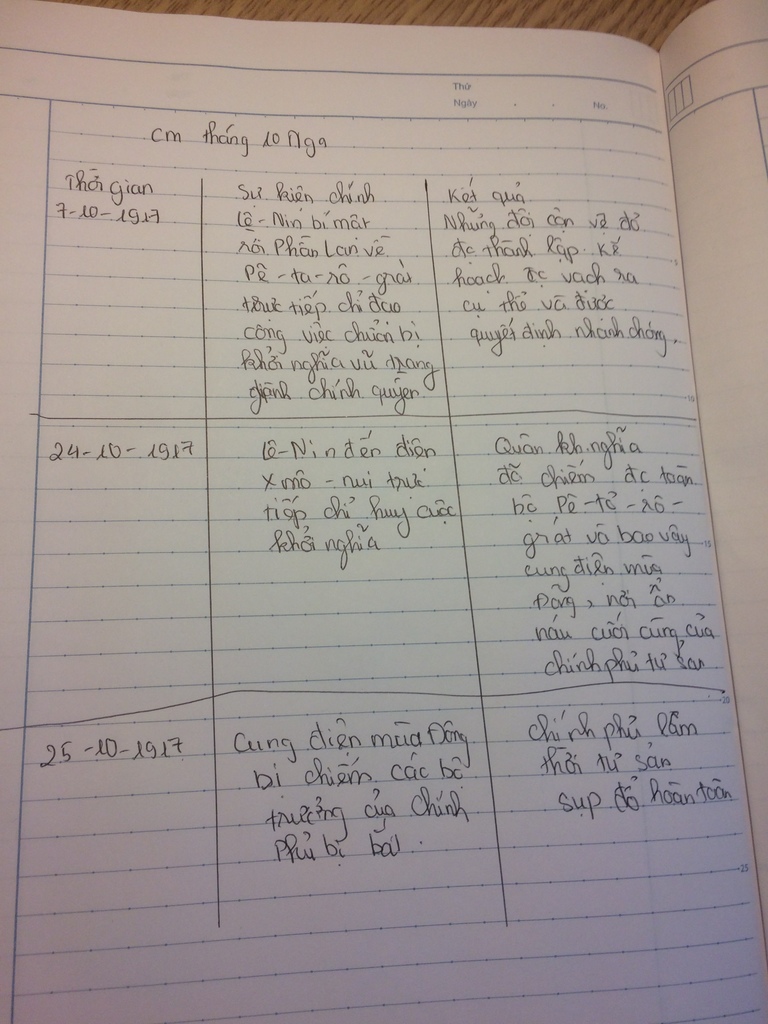 Thứ
Ngày . . No.
CM tháng 10 Nga
Thời gian
7-10-1917
Sự kiện chính
Lê-Nin bí mật
rời Phần Lan về
Pê-tơ-rô-grát
trực tiếp chỉ đạo
công việc chuẩn bị
khởi nghĩa vũ trang
giành chính quyền
Kết quả
Những đội cận vệ đỏ
đc thành lập. Kế
hoạch đc vạch ra
cụ thể và được
quyết định nhanh chóng.
24-10-1917
Lê-Nin đến điện
Xmô-nưi trực
tiếp chỉ huy cuộc
khởi nghĩa
Quân kh.nghĩa
đã chiếm đc toàn
bộ Pê-tơ-rô-
grát và bao vây
cung điện mùa
Đông, nơi ẩn
náu cuối cùng của
chính phủ tư sản
25-10-1917
Cung điện mùa Đông
bị chiếm các bộ
trưởng của chính
phủ bị bắt.
chính phủ lâm
thời tư sản
sụp đổ hoàn toàn
10
15
20
25